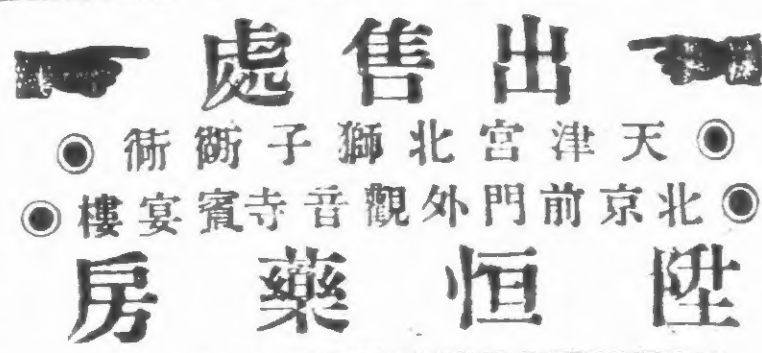 出售處
天津宮北獅子衚衕
北京前門外觀音寺賓宴樓
陞恒藥房